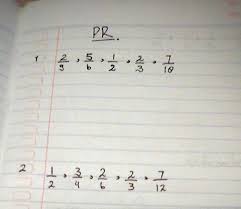 PR.
1 2/9, 5/6, 1/2, 2/3, 7/18
2 1/2, 3/4, 2/6, 2/3, 7/12